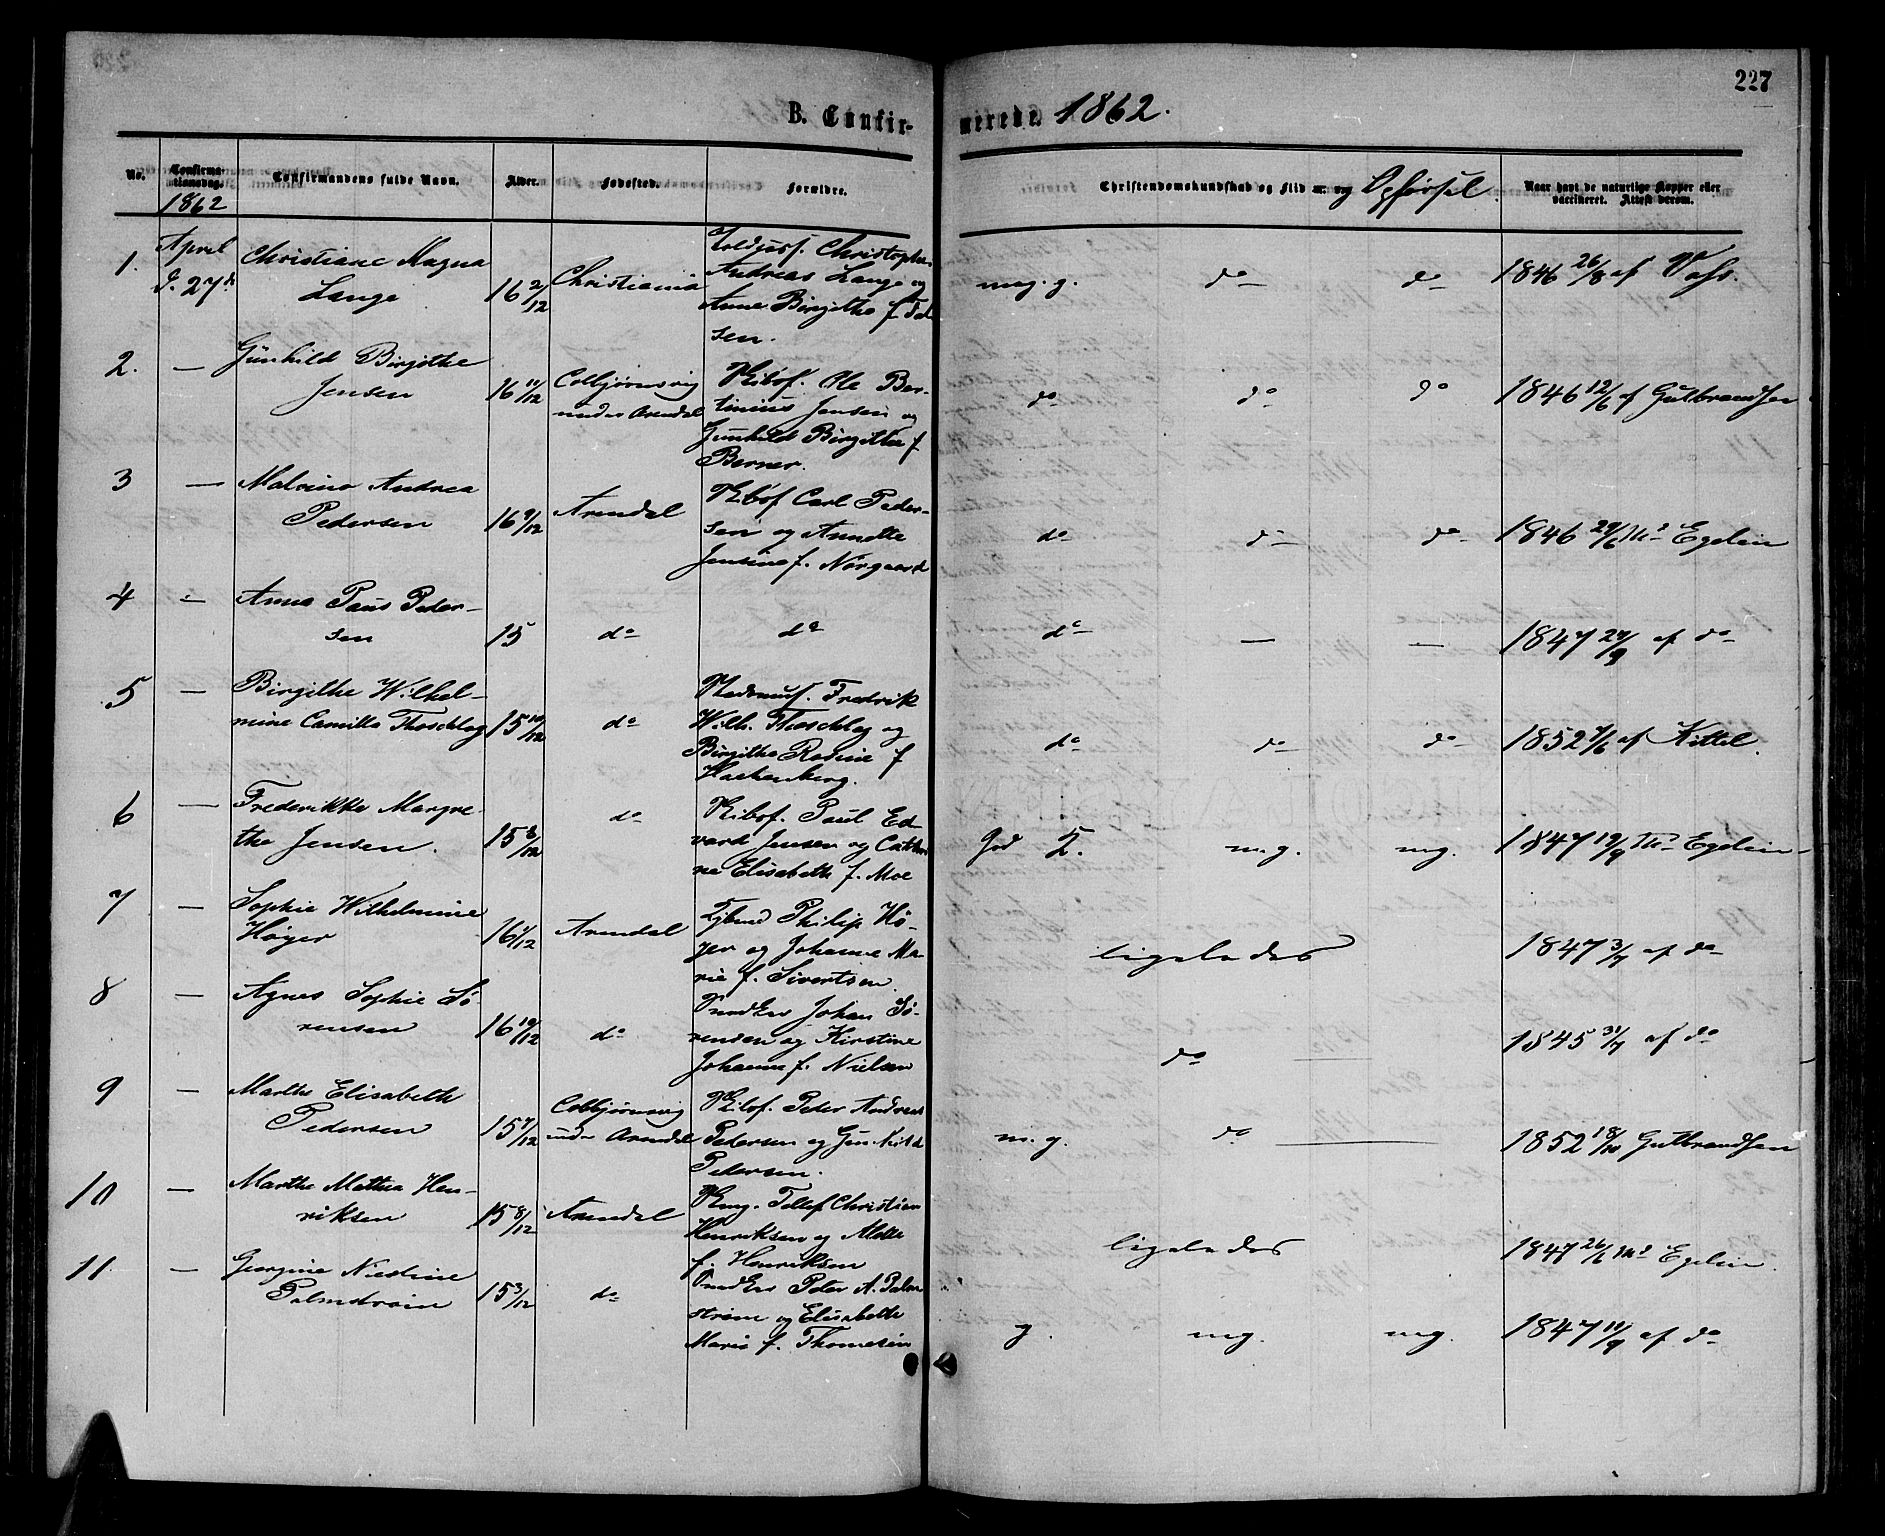 227
B. Confir- merede 1862.
No. Confirma-
tionsdag. Confirmandens fulde Navn. Alder. Fødested. Forældre. Christendomskundskab og Flid og Opførsel. Naar havt de naturlige Kopper eller
vaccineret. Attest derom.
1862
1. April
d. 27d.
Christiane Magna
Lange
16 2/12
Christiania
Christopher
Andreas Lange og
Anne Birgithe f.
sen.
meg. g. do do 1846 26/8 af Voss.
2. —
Günhild Birgithe
Jensen
16 11/12
Colbjørnsvig
under Arendal
Skibsf. Ole Ber-
tinius Jensen og
Gunhild Birgitha f.
Berner.
do do do 1846 12/6 af Gulbrandsen
3 —
Malvina Andrea
Pedersen
16 9/12
Arendal
Skibsf Carl Peder-
sen og Annette
Jensine f. Norgaard
do do do 1846 29/6 Egelin
4 —
Anna Paus Peder-
sen
15
do
do
do — — 1847 27/9 af do
5 —
Birgithe Wilhel-
mine Camilla Thoschlag
15 10/12
do
Fredrik
Wilh. Thoschlag og
Birgithe Rodine f
Hackenberg.
do do do 1852 7/6 af Kittel.
6 —
Frederikke Margre-
the Jensen.
15 8/12
do
Skibsf. Paul Ed-
vard Jensen og Cathri
ne Elisabeth f. Moe
God m.g. mg. 1847 19/9 Egelin
7 —
Sophie Wilhelmine
Høyer
16 1/12
Arendal
Philip Hø-
yer og Johanne Ma-
rie f. Sivertsen.
ligeledes 1847 3/7 af do
8 —
Agnes Sophie Sö-
rensen
16 10/12
do
Johan Sö-
rensen og Kirstine
Johanne f. Nielsen
do 1845 31/7 af do
9 —
Marthe Elisabeth
Pedersen
15 7/12
Colbjørnsvig
under Arendal
Skibsf. Peder Andreas
Pedersen og Gunhild
Pedersen.
m. g. do 1852 18/10 Gulbrandsen
10 —
Marthe Mathea Hen-
riksen
15 8/12
Arendal
Tellef Christian
Henriksen og Alette
f. Henriksen
ligeledes 1847 26/6 Egelin.
11. —
Georgine Nicoline
Palmstrøm
15 3/12
do
Peter A. Palm
strøm og Elisabeth
Marie f. Thomesen
g. mg. mg. 1847 19/9 af do